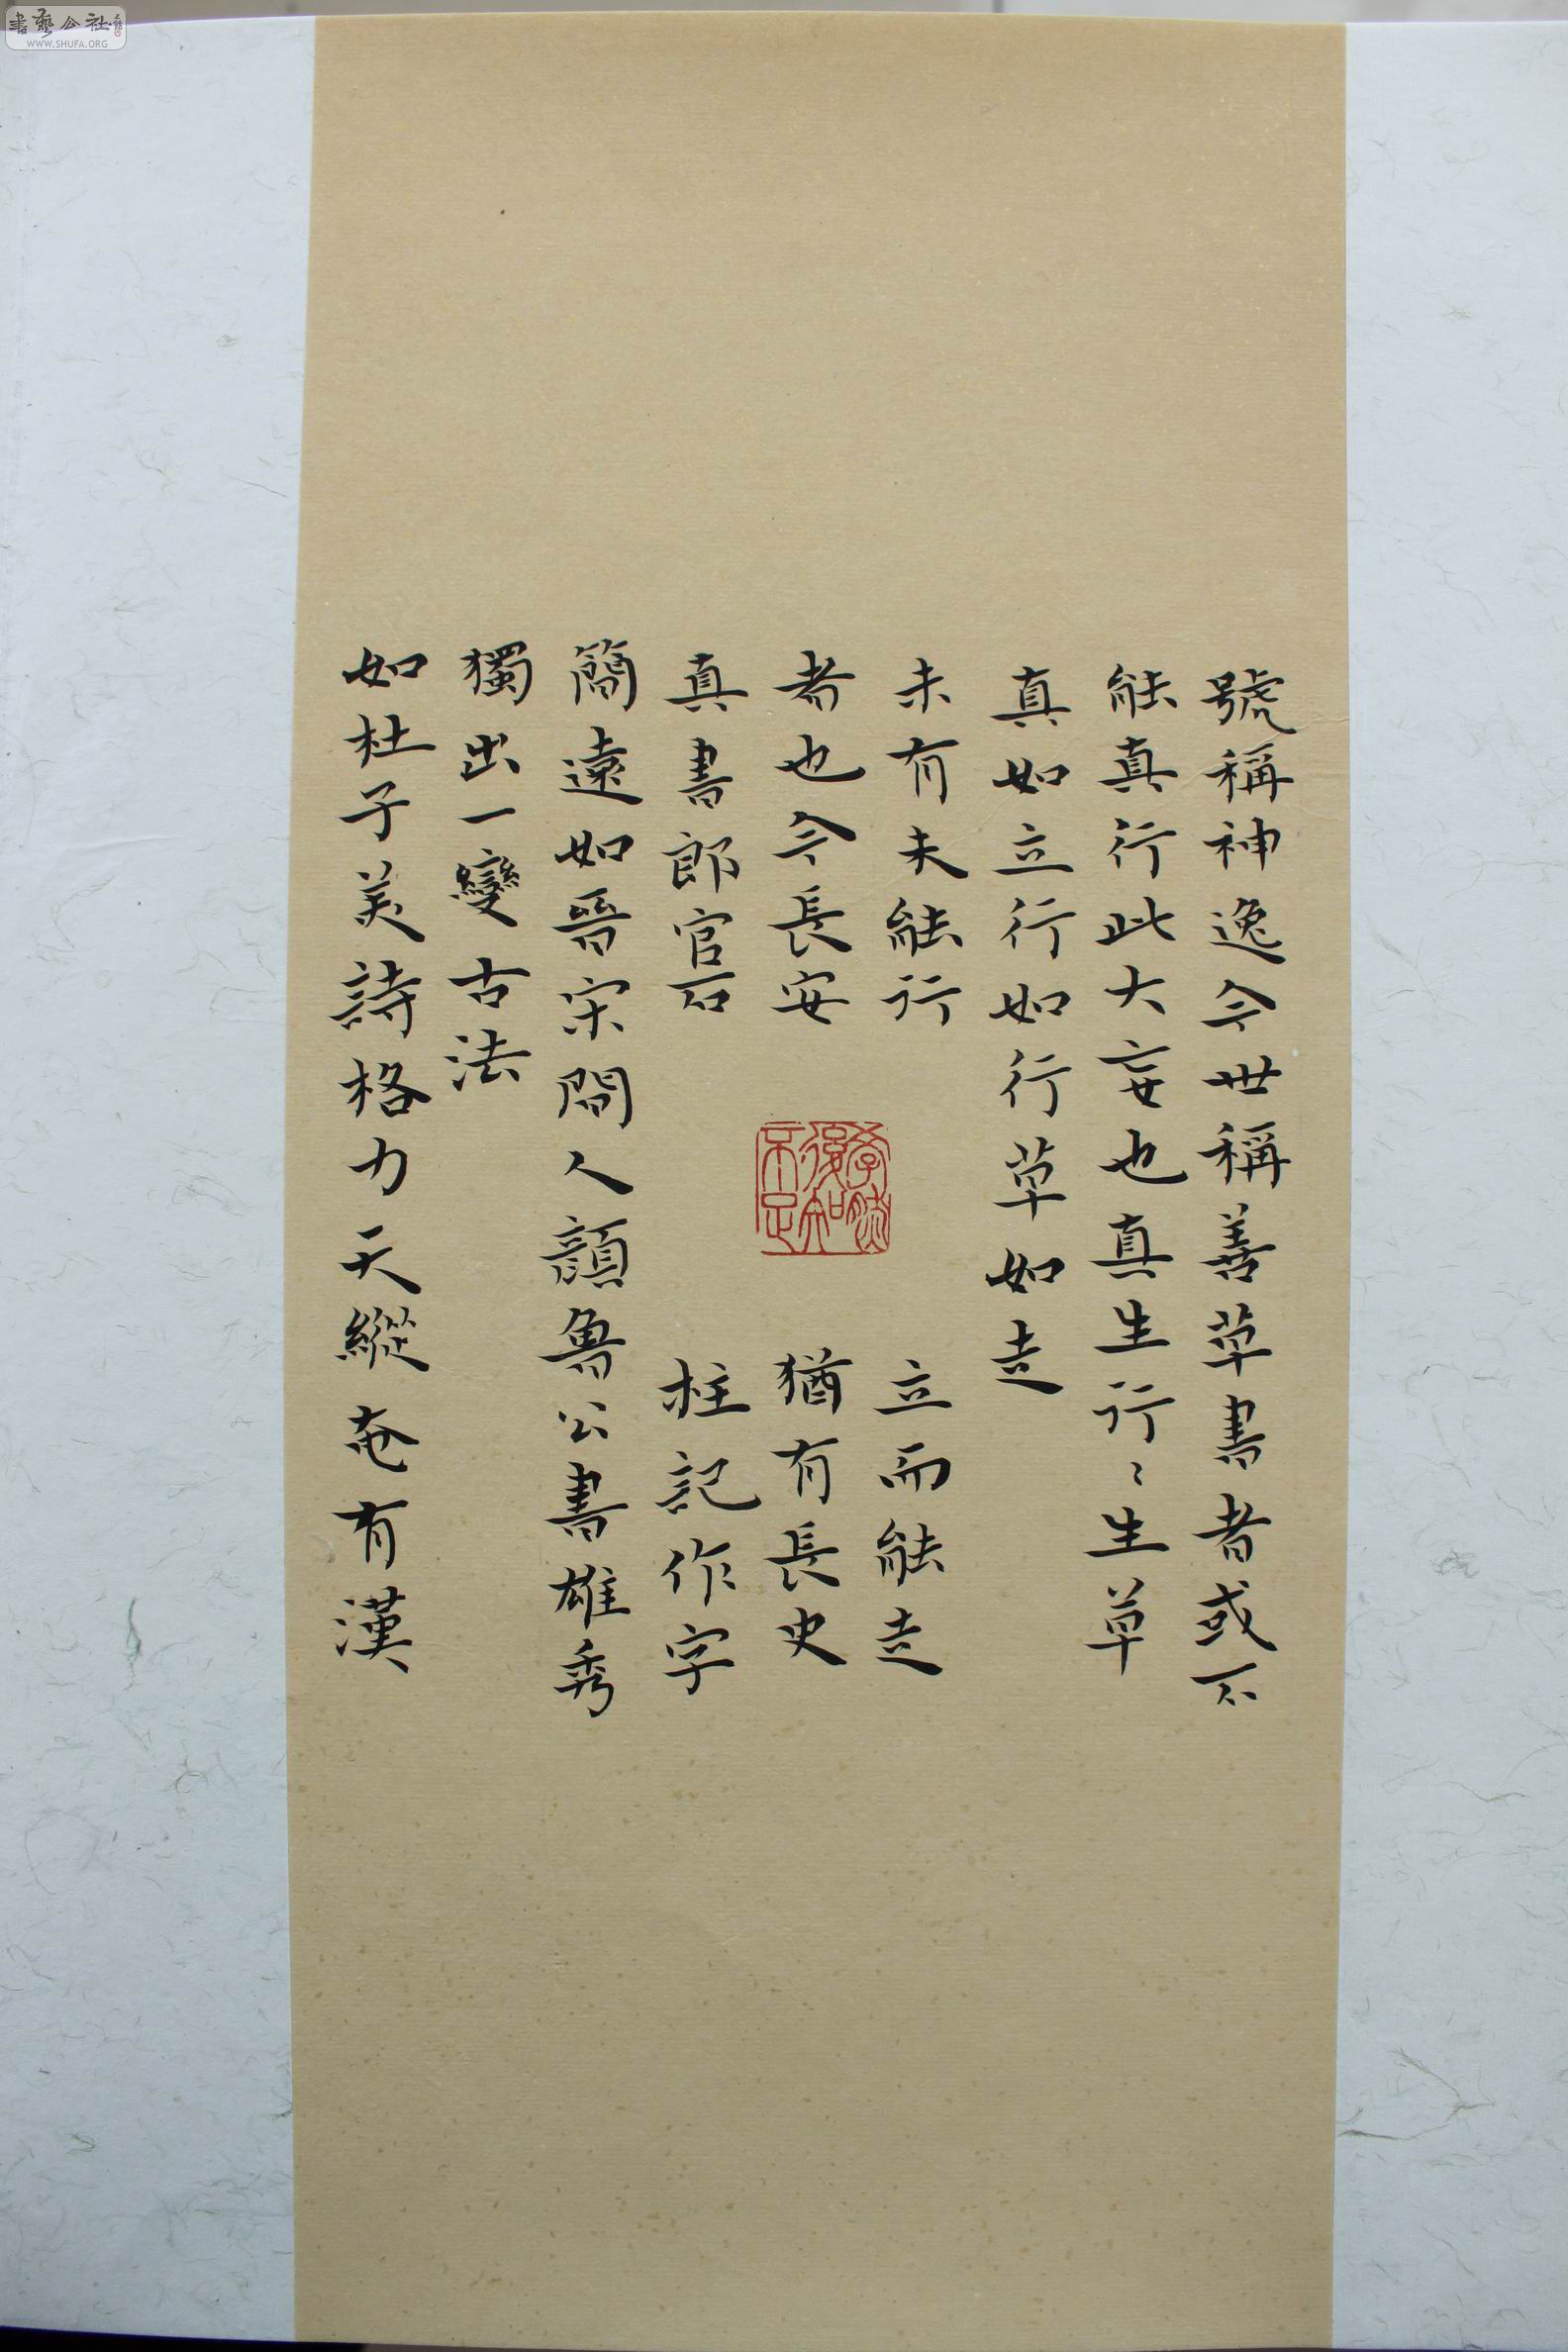 號稱神逸今世稱善草書者或不
能真行此大妄也真生行〻生草
真如立行如行草如走
未有未能行立而能走
者也今長安猶有長史
真書郎官石柱記作字
簡遠如晉宋間人顏魯公書雄秀
獨出一變古法
如杜子美詩格力天縱奄有漢
學然後知不足
書藝公社
WWW.SHUFA.ORG